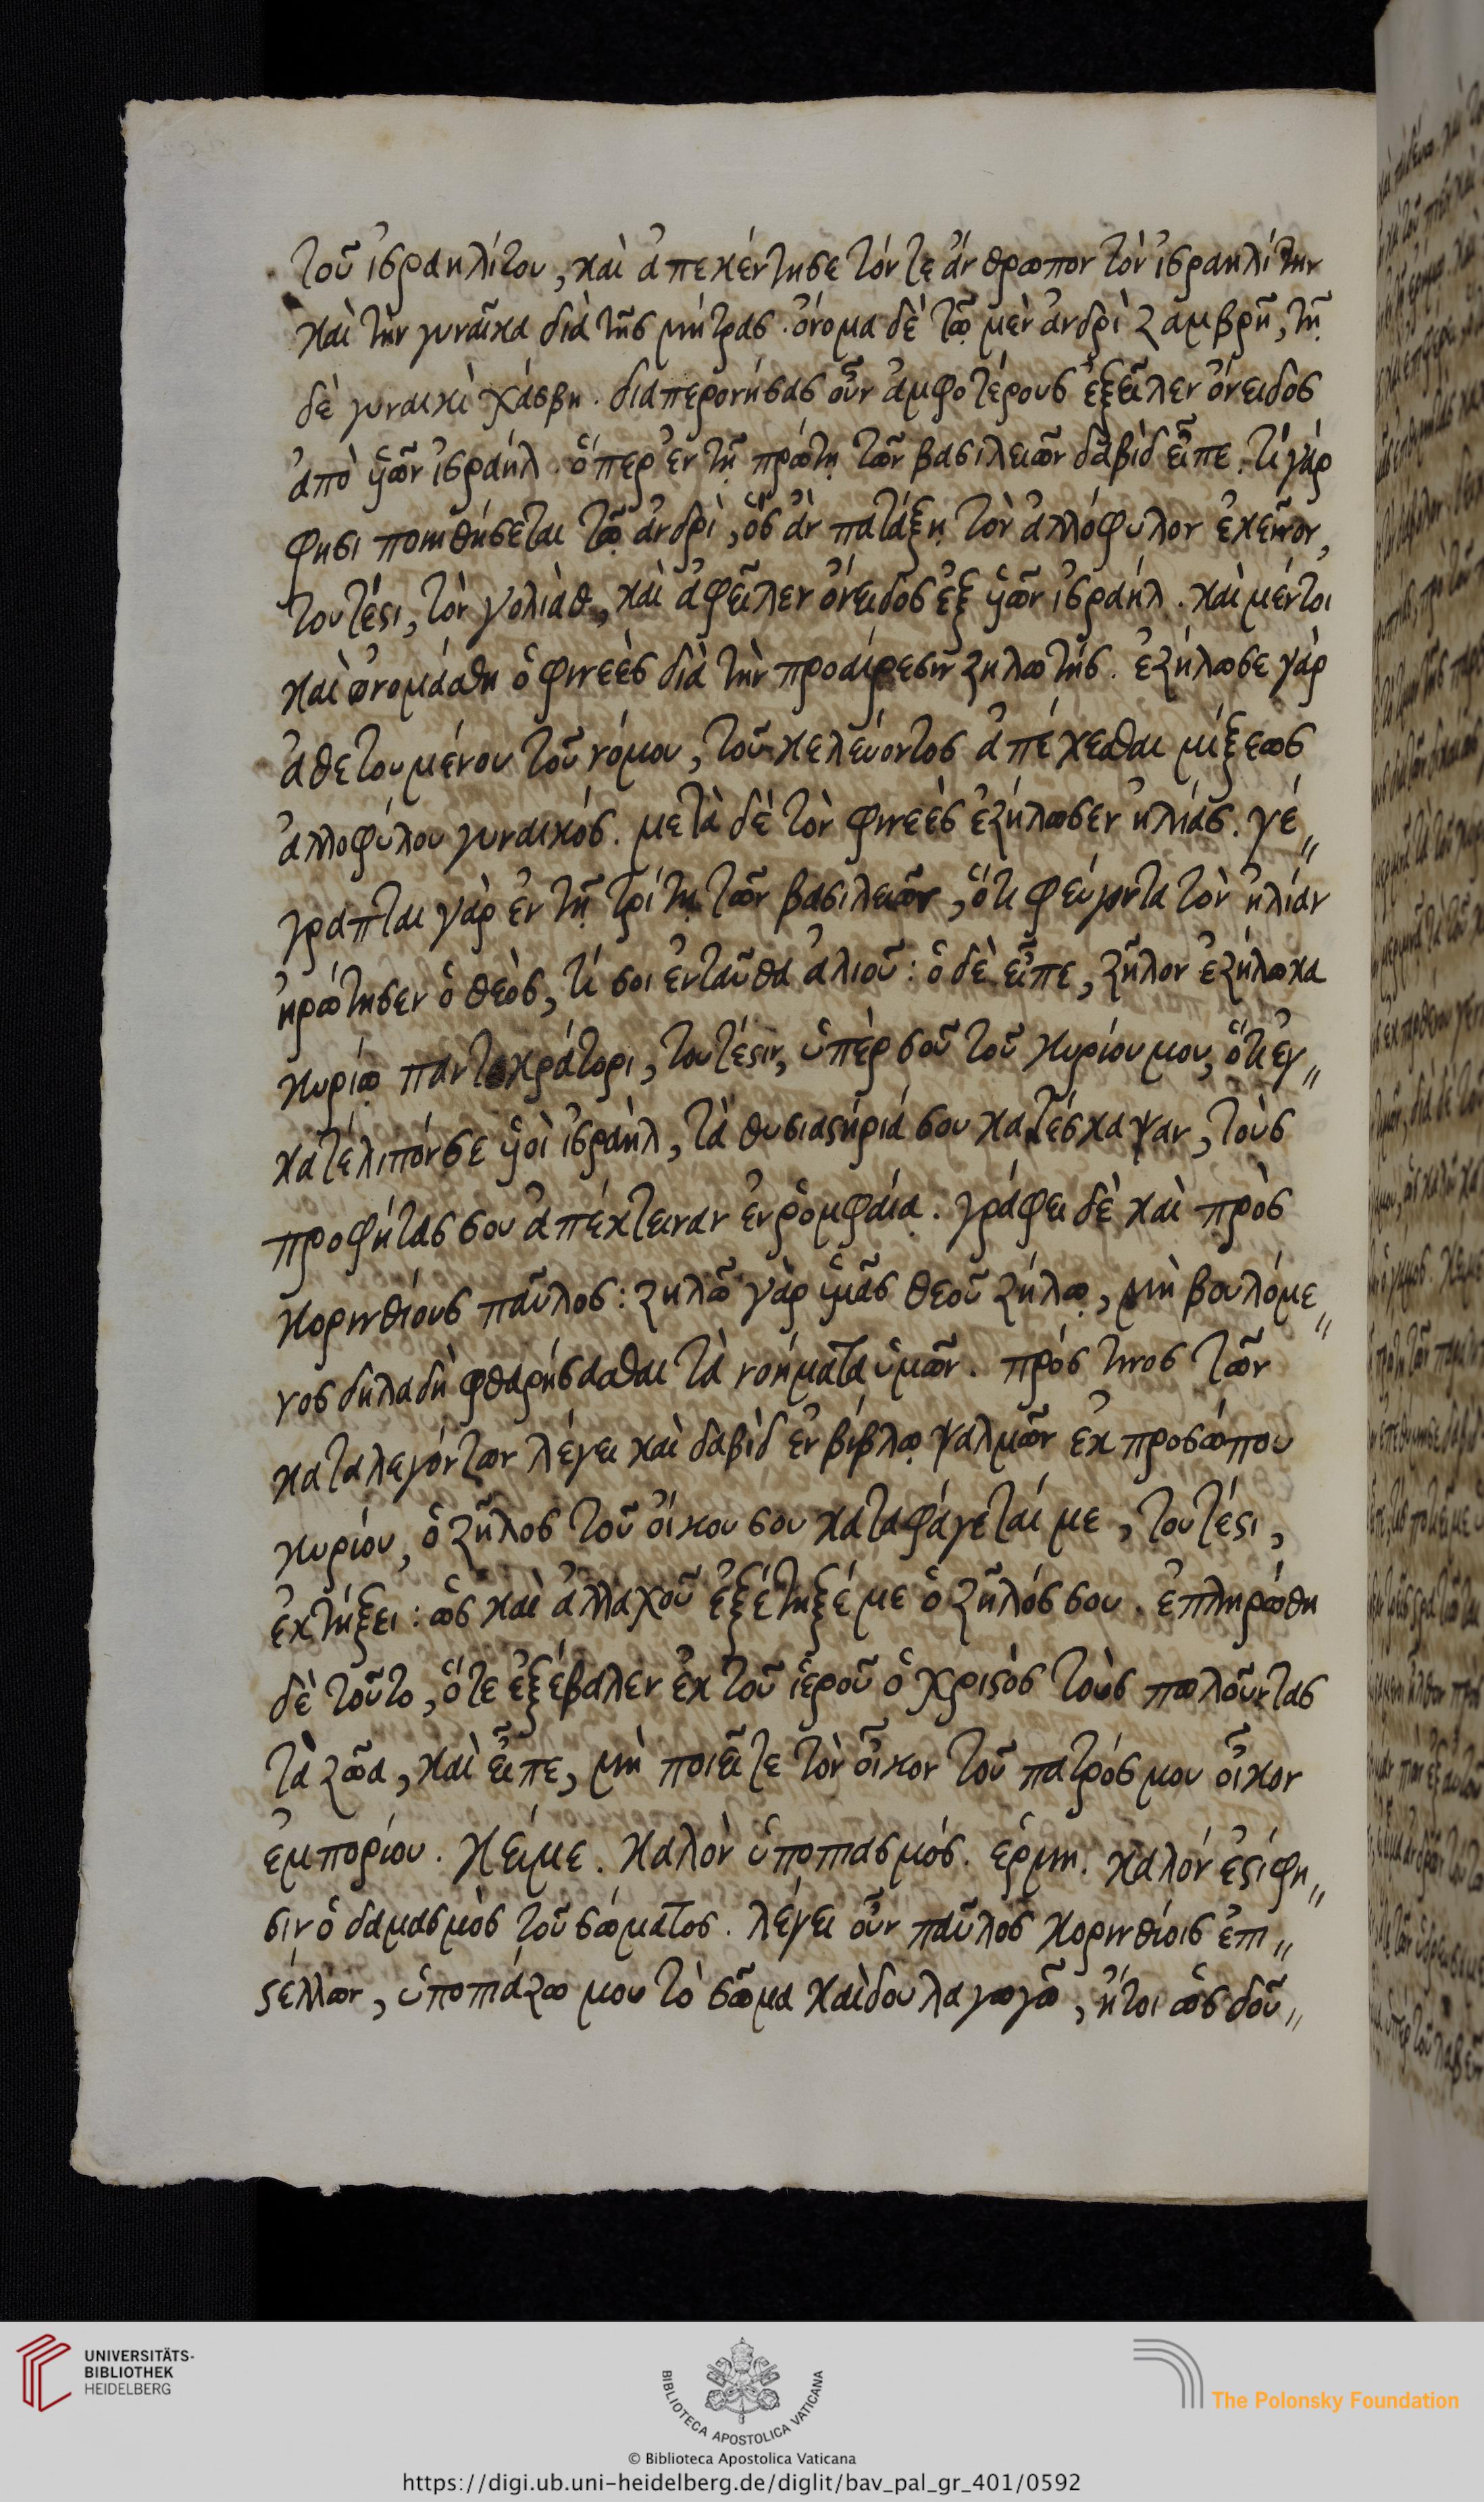 τοῦ ἰσραηλίτου, καὶ ἀπεκέντησε τόν τε ἄνθρωπον τὸν ἰσραηλίτην
καὶ τὴν γυναῖκα διὰ τῆς μήτρας. ὄνομα δὲ τῷ μὲν ἀνδρὶ ζαμβρῆ, τῇ
δὲ γυναικὶ χάσβη. διαπερονήσας οὖν ἀμφοτέρους ἐξεῖλεν ὄνειδος
ἀπὸ ὑῶν ἰσραήλ. ὅπερ ἐν τῇ πρώτῃ τῶν βασιλειῶν δαβὶδ εἶπε. τί γάρ
φησι ποιηθήσεται τῷ ἀνδρὶ, ὃς ἂν πατάξῃ τὸν ἀλλόφυλον ἐκεῖνον,
τουτέστι, τὸν γολιὰθ, καὶ ἀφεῖλεν ὄνειδος ἐξ ὑῶν ἰσραήλ. καὶ μέντοι
καὶ ὠνομάσθη ὁ φινεὲς διὰ τὴν προαίρεσιν ζηλωτής. ἐζήλωσε γὰρ
ἀθετουμένου τοῦ νόμου, τοῦ κελεύοντος ἀπέχεσθαι μίξεως
ἀλλοφύλου γυναικός. μετὰ δὲ τὸν φινεὲς ἐζήλωσεν ἠλιάς. γέ〃
γραπται γὰρ ἐν τῇ τρίτῃ τῶν βασιλειῶν, ὅτι φεύγοντα τὸν ἠλίαν
ἠρώτησεν ὁ θεὸς, τί σοι ἐνταῦθα ἀλιοῦ: ὁ δὲ εἶπε, ζῆλον ἐζήλωκα
κυρίῳ παντοκράτορι, τουτέστιν, ὑπὲρ σοῦ τοῦ κυρίου μου, ὅτι ἐγ〃
κατέλιπόν σε ὑοὶ ἰσραὴλ, τὰ θυσιαστήριά σου κατέσκαψαν, τοὺς
προφήτας σου ἀπέκτειναν ἐν ῥομφαίᾳ. γράφει δὲ καὶ πρὸς
κορινθίους παῦλος: ζηλῶ γὰρ ὑμᾶς θεοῦ ζήλῳ, μὴ βουλόμε〃
νος δηλαδὴ φθαρήσασθαι τὰ νοήματα ὑμῶν. πρός τινος τῶν
καταλεγόντων λέγει καὶ δαβὶδ ἐν βίβλῳ ψαλμῶν ἐκ προσώπου
κυρίου, ὁ ζῆλος τοῦ οἴκου σου καταφάγεταί με, τουτέστι,
ἐκτήξει: ὡς καὶ ἀλλαχοῦ ἐξέτηξέ με ὁ ζῆλός σου. ἐπληρώθη
δὲ τοῦτο, ὅτε ἐξέβαλεν ἐκ τοῦ ἱεροῦ ὁ χριστὸς τοὺς πωλοῦντας
τὰ ζῶα, καὶ εἶπε, μὴ ποιεῖτε τὸν οἶκον τοῦ πατρός μου οἶκον
ἐμπορίου. κείμε. καλὸν ὑποπιασμός. ἑρμη. καλόν ἐστί φη〃
σιν ὁ δαμασμὸς τοῦ σώματος. λέγει οὖν παῦλος κορινθίοις ἐπι〃
στέλλων, ὑποπιάζω μου τὸ σῶμα καὶ δουλαγωγῶ, ἤτοι ὡς δοῦ〃
UNIVERSITÄTS-
BIBLIOTHEK
HEIDELBERG
BIBLIOTECA APOSTOLICA VATICANA
The Polonsky Foundation
© Biblioteca Apostolica Vaticana
https://digi.ub.uni-heidelberg.de/diglit/bav_pal_gr_401/0592